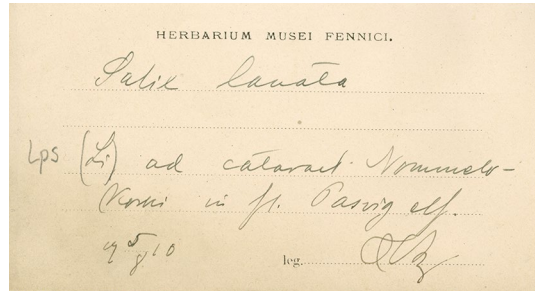 HERBARIUM MUSEI FENNICI.
Salix lanata
Lps (Li) ad cataract. Nommelo-
Koski in fl. Pasvig elf.
19 5/8 10
leg.